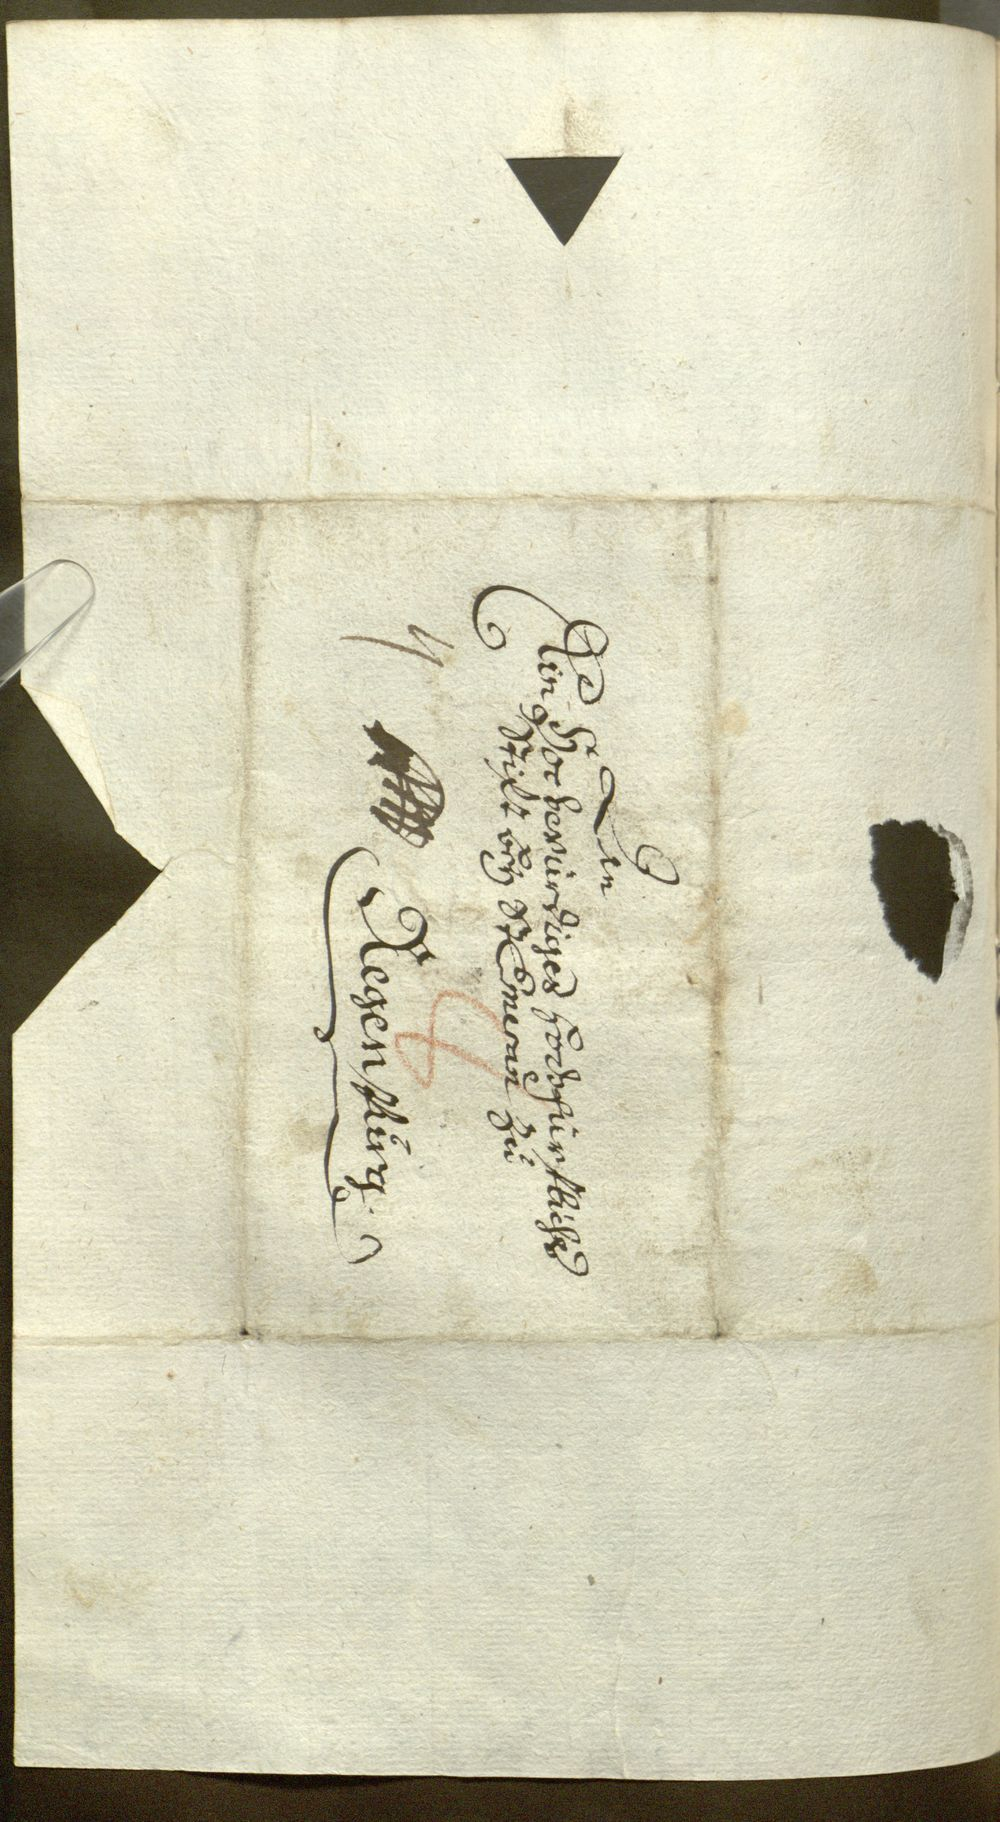 An
Ein Hochwürdiges Hochfürstliches
Stift bey St Emeram zu
Regenspurg.
4